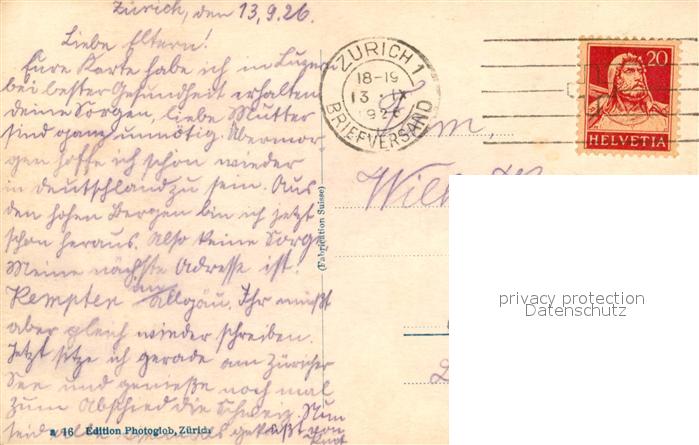 Zürich, den 13.9.26.
Liebe Eltern!
Eure Karte habe ich in Luzern
bei bester Gesundheit erhalten
deine Sorgen, liebe Mutter
sind ganz unnötig. Übermor-
gen hoffe ich schon wieder
in Deutschland zu sein. Aus
den hohen Bergen bin ich jetzt
schon heraus. Also keine Sorge
Meine nächste Adresse ist.
Kempten im Allgäu. Ihr müßt
aber gleich wieder schreiben.
Jetzt sitze ich gerade am Züricher
See und genieße noch mal
zum Abschied die Schweiz. Nun
seid gegrüßt von
ZÜRICH 1
18-19
13. IX
192
BRIEFVERSAND
20
HELVETIA
Fam.
Wilh.
(Fabrication Suisse)
privacy protection
Datenschutz
a 16 Edition Photoglob, Zürich